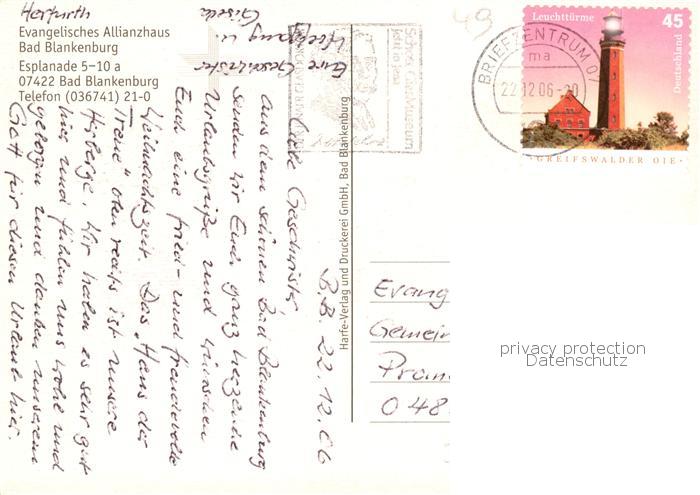 Evangelisches Allianzhaus
Bad Blankenburg
Esplanade 5–10 a
07422 Bad Blankenburg
Telefon (036741) 21-0
B.B. 22.12.06
Liebe Geschwister
Aus dem schönen Bad Blankenburg
senden wir Euch ganz herzliche
Urlaubsgrüße und wünschen
Euch eine fried- und freudevolle
Weihnachtszeit. Das „Haus der
Treue" oben rechts ist unsere
Herberge. Wir haben es sehr gut
hier und fühlen uns wohl und
geborgen und danken unserem
Gott für diesen Urlaub hier.
Eure Geschwister
Wolfgang u.
Gisela
Herfurth
Harfe-Verlag und Druckerei GmbH, Bad Blankenburg
49
BRIEFZENTRUM 0
ma
22.12.06-20
Leuchttürme
45
Deutschland
GREIFSWALDER OIE
Evang
Gemein
Prom
048
privacy protection
Datenschutz